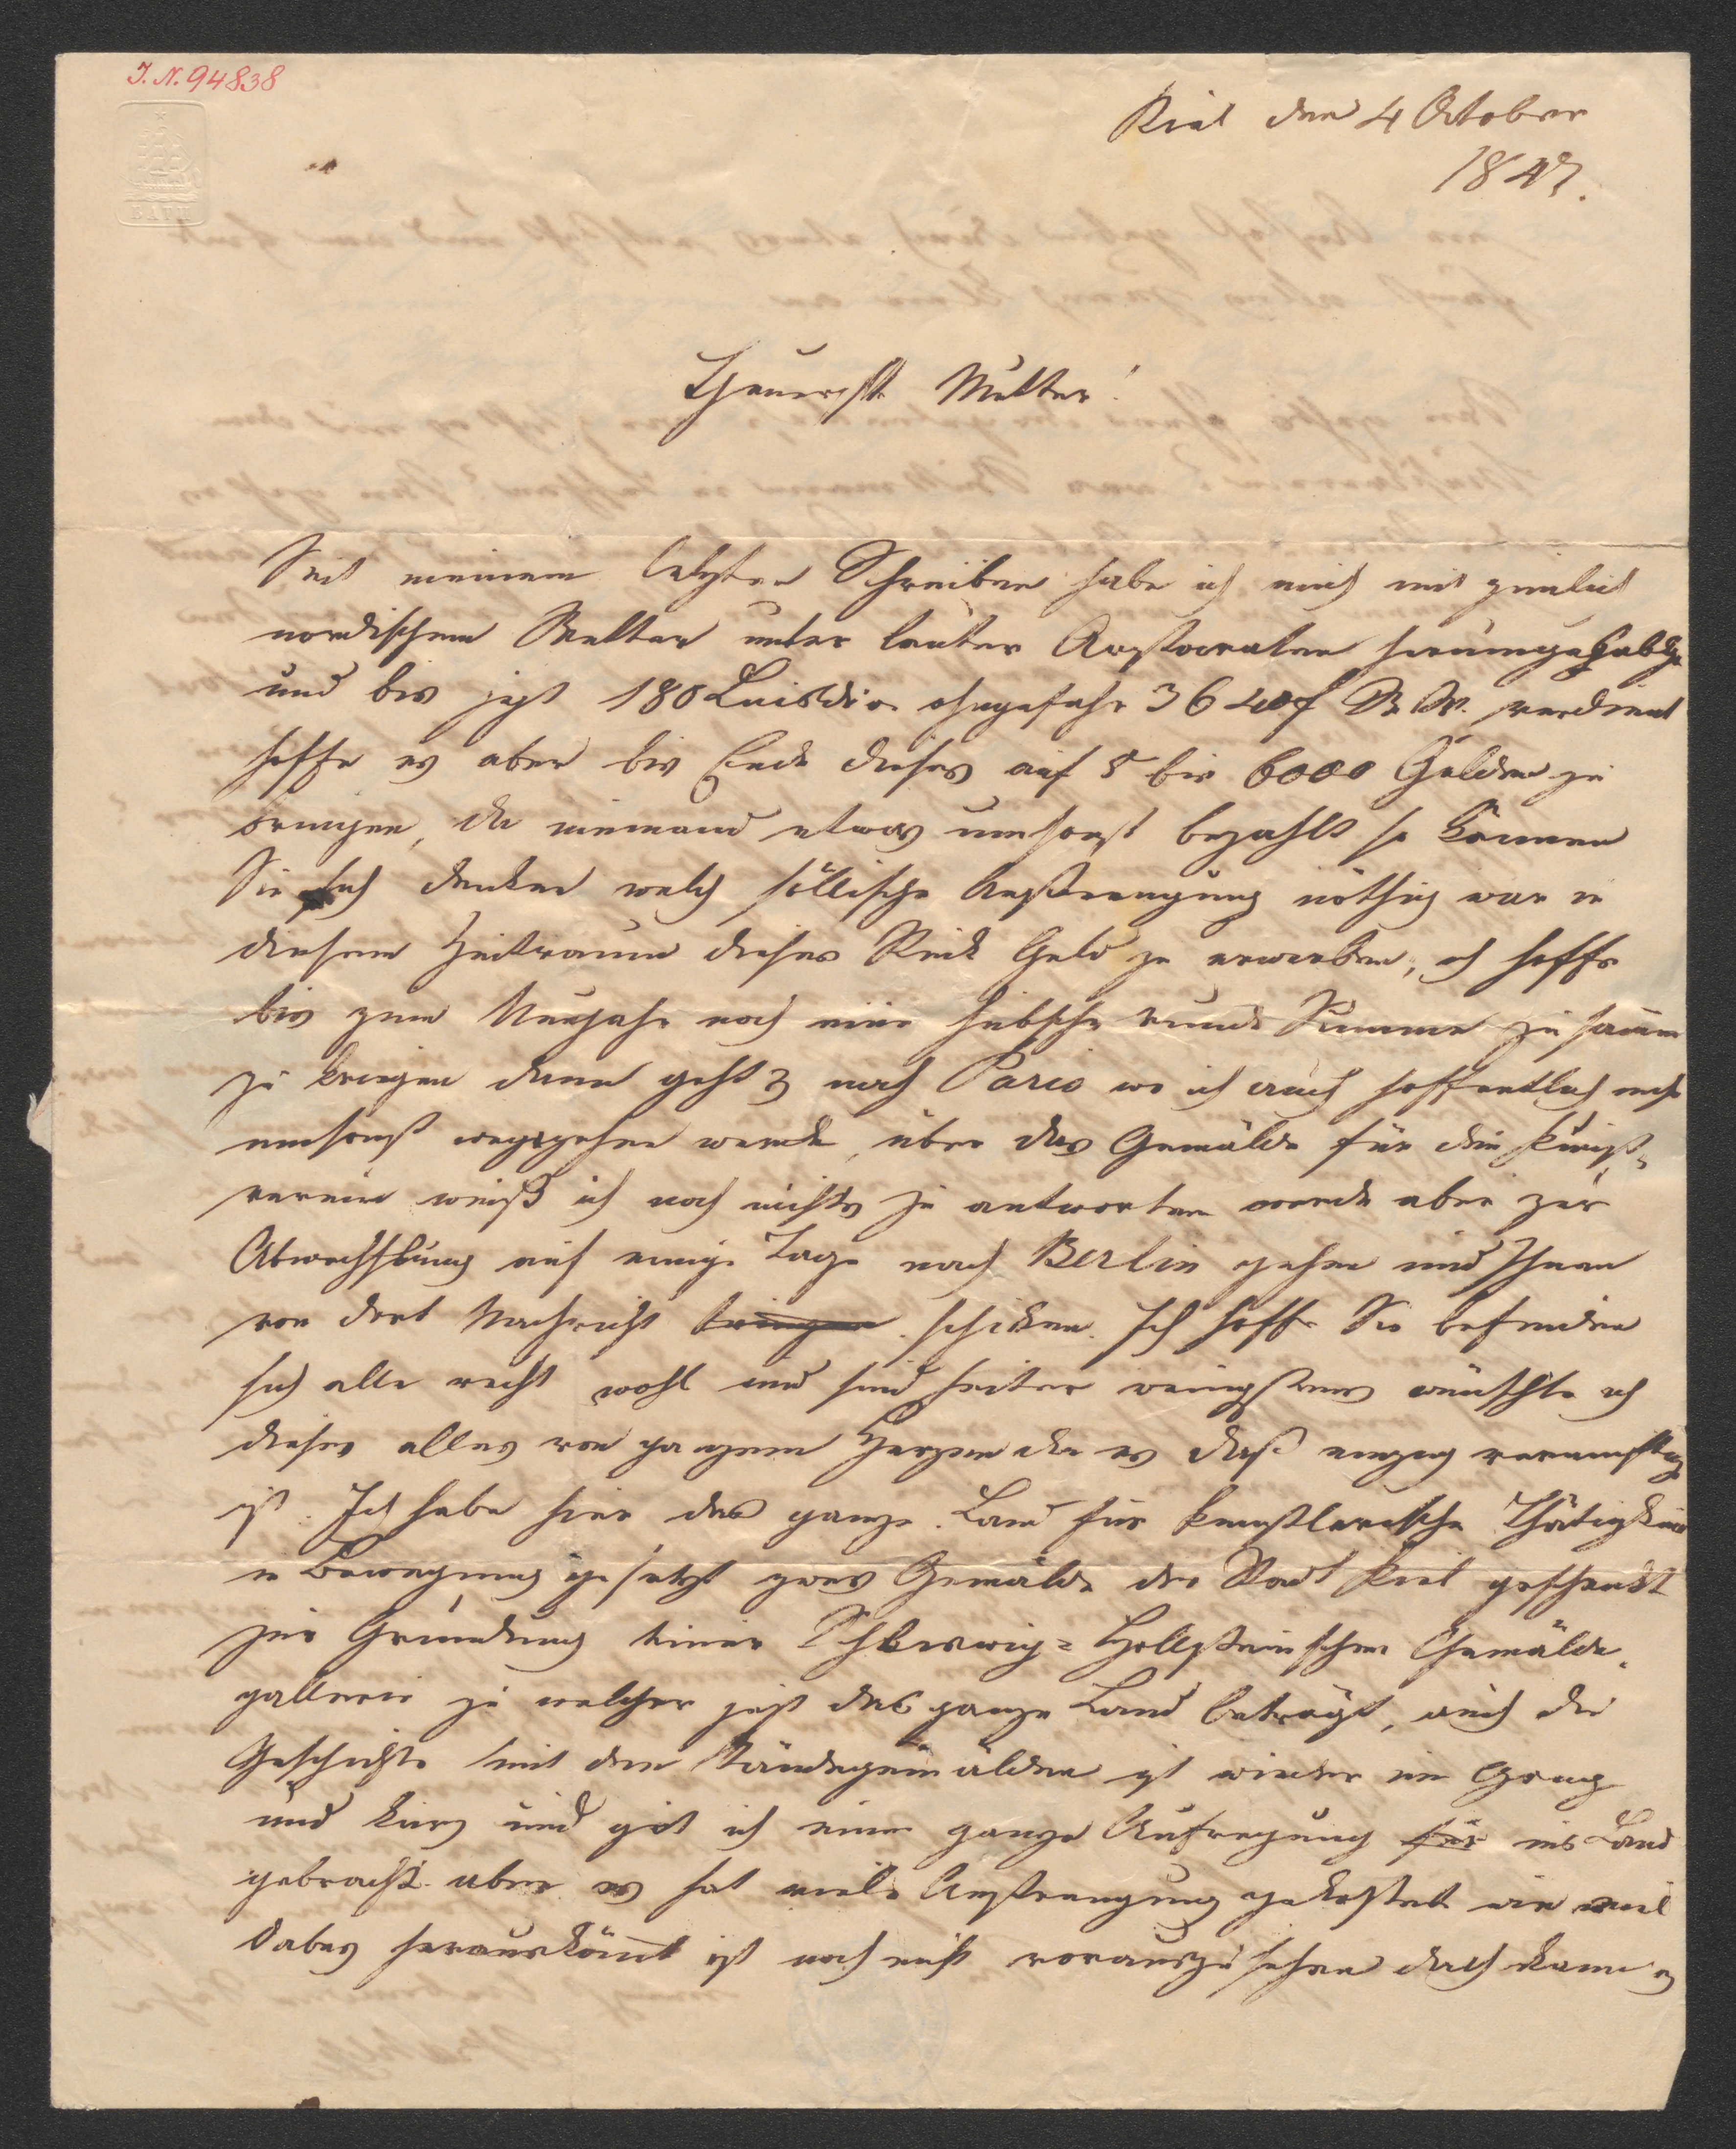 I. N. 94838
BATH
Kiel den 4 October
1847.
Theuerste Mutter!
Seit meinem letzten Schreiben habe ich mich mit zimlich
nordischem Wetter unter lauter Aristocraten herumgebalgt
und bis jezt 180 Luisdio ohngefehr 3640 f W. W. verdient
hoffe es aber bis Ende dieses auf 5 bis 6000 Gulden zu
bringen, da niemand etwas umsonst bezahlt so können
Sie sich denken welch höllische Anstrengung nöthig war in
diesem Zeitraum dieses Stück Geld zu erwerben, ich hoffe
bis zum Neujahr noch eine hübsche runde Summe zusammen
zu bringen dann gehts nach Paris wo ich auch hoffentlich nicht
umsonst weggehen werde, über das Gemälde für den Kunst=
verein weiß ich noch nichts zu antworten werde aber zur
Abwechslung auf einige Tage nach Berlin gehen und Ihnen
von dort Nachricht bringen schicken. Ich hoffe Sie befinden
sich alle recht wohl und sind heiter wenigstens wünschte ich
dieses alles von ganzem Herzen da es das einzig vernünftige
ist. Ich habe hier das ganze Land für künstlerische Thätigkeit
in Bewegung gesetzt zwei Gemälde der Stadt Kiel geschenkt
zur Gründung einer Schleswig=Hollsteinschen Gemälde=
gallerie zu welcher jezt das ganze Land beträgt, auch die
Geschichte mit den Ständegemälden ist wieder im Gang
und kurz und gut ich eine ganze Aufregung für ins Land
gebracht aber es hat viele Anstrengung gekostet wie viel
dabey herauskömt ist noch nicht vorauszusehen doch kann es